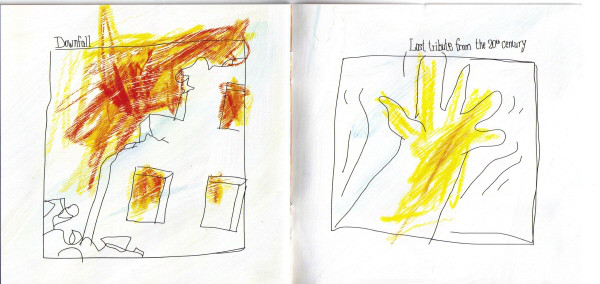 Downfall
Last tribute from the 20th century